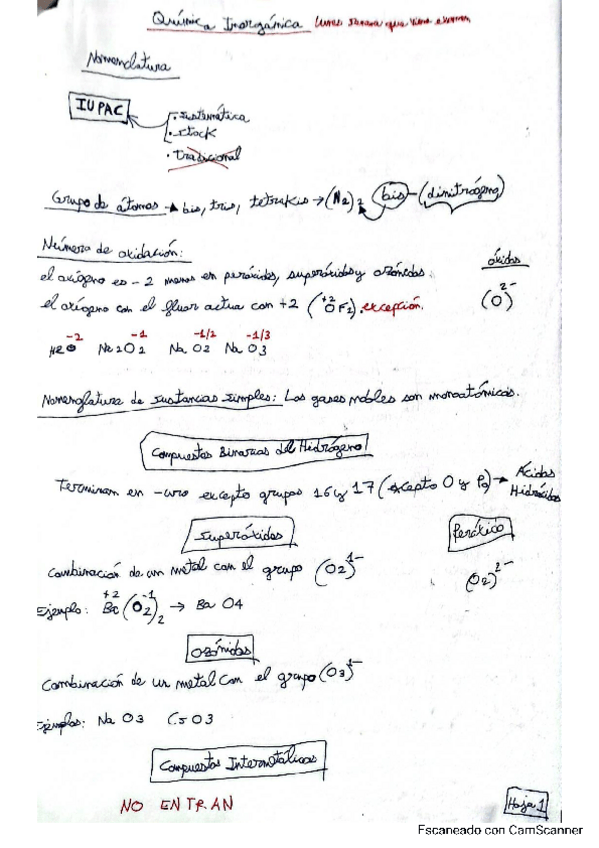 Química Inorgánica Lunes semana que viene examen
Nomenclatura
IUPAC
· sistemática
· stock
· tradicional
Grupo de átomos → bis, tris, tetrakis → (N2)2 bis-(dinitrógeno)
Número de oxidación:
óxidos
el oxígeno es -2 menos en peróxidos, superóxidos y ozónidos.
el oxígeno con el fluor actua con +2 (+2 O F2). excepción.
(O)2-
-2 -1 -1/2 -1/3
H2O Na2O2 NaO2 NaO3
Nomenclatura de sustancias simples: Los gases nobles son monoatómicos.
Compuestos Binarios del Hidrógeno
Terminan en -uro excepto grupos 16 y 17 (excepto O y Po) → Ácidos Hidrácidos
Superóxidos
Peróxido
Combinación de un metal con el grupo (O2)1-
(O2)2-
Ejemplo: +2 Ba (O2)-1 2 → BaO4
Ozónidos
Combinación de un metal con el grupo (O3)1-
Ejemplos: NaO3 CsO3
Compuestos Intermetálicos
NO ENTRAN
Hoja 1
Escaneado con CamScanner